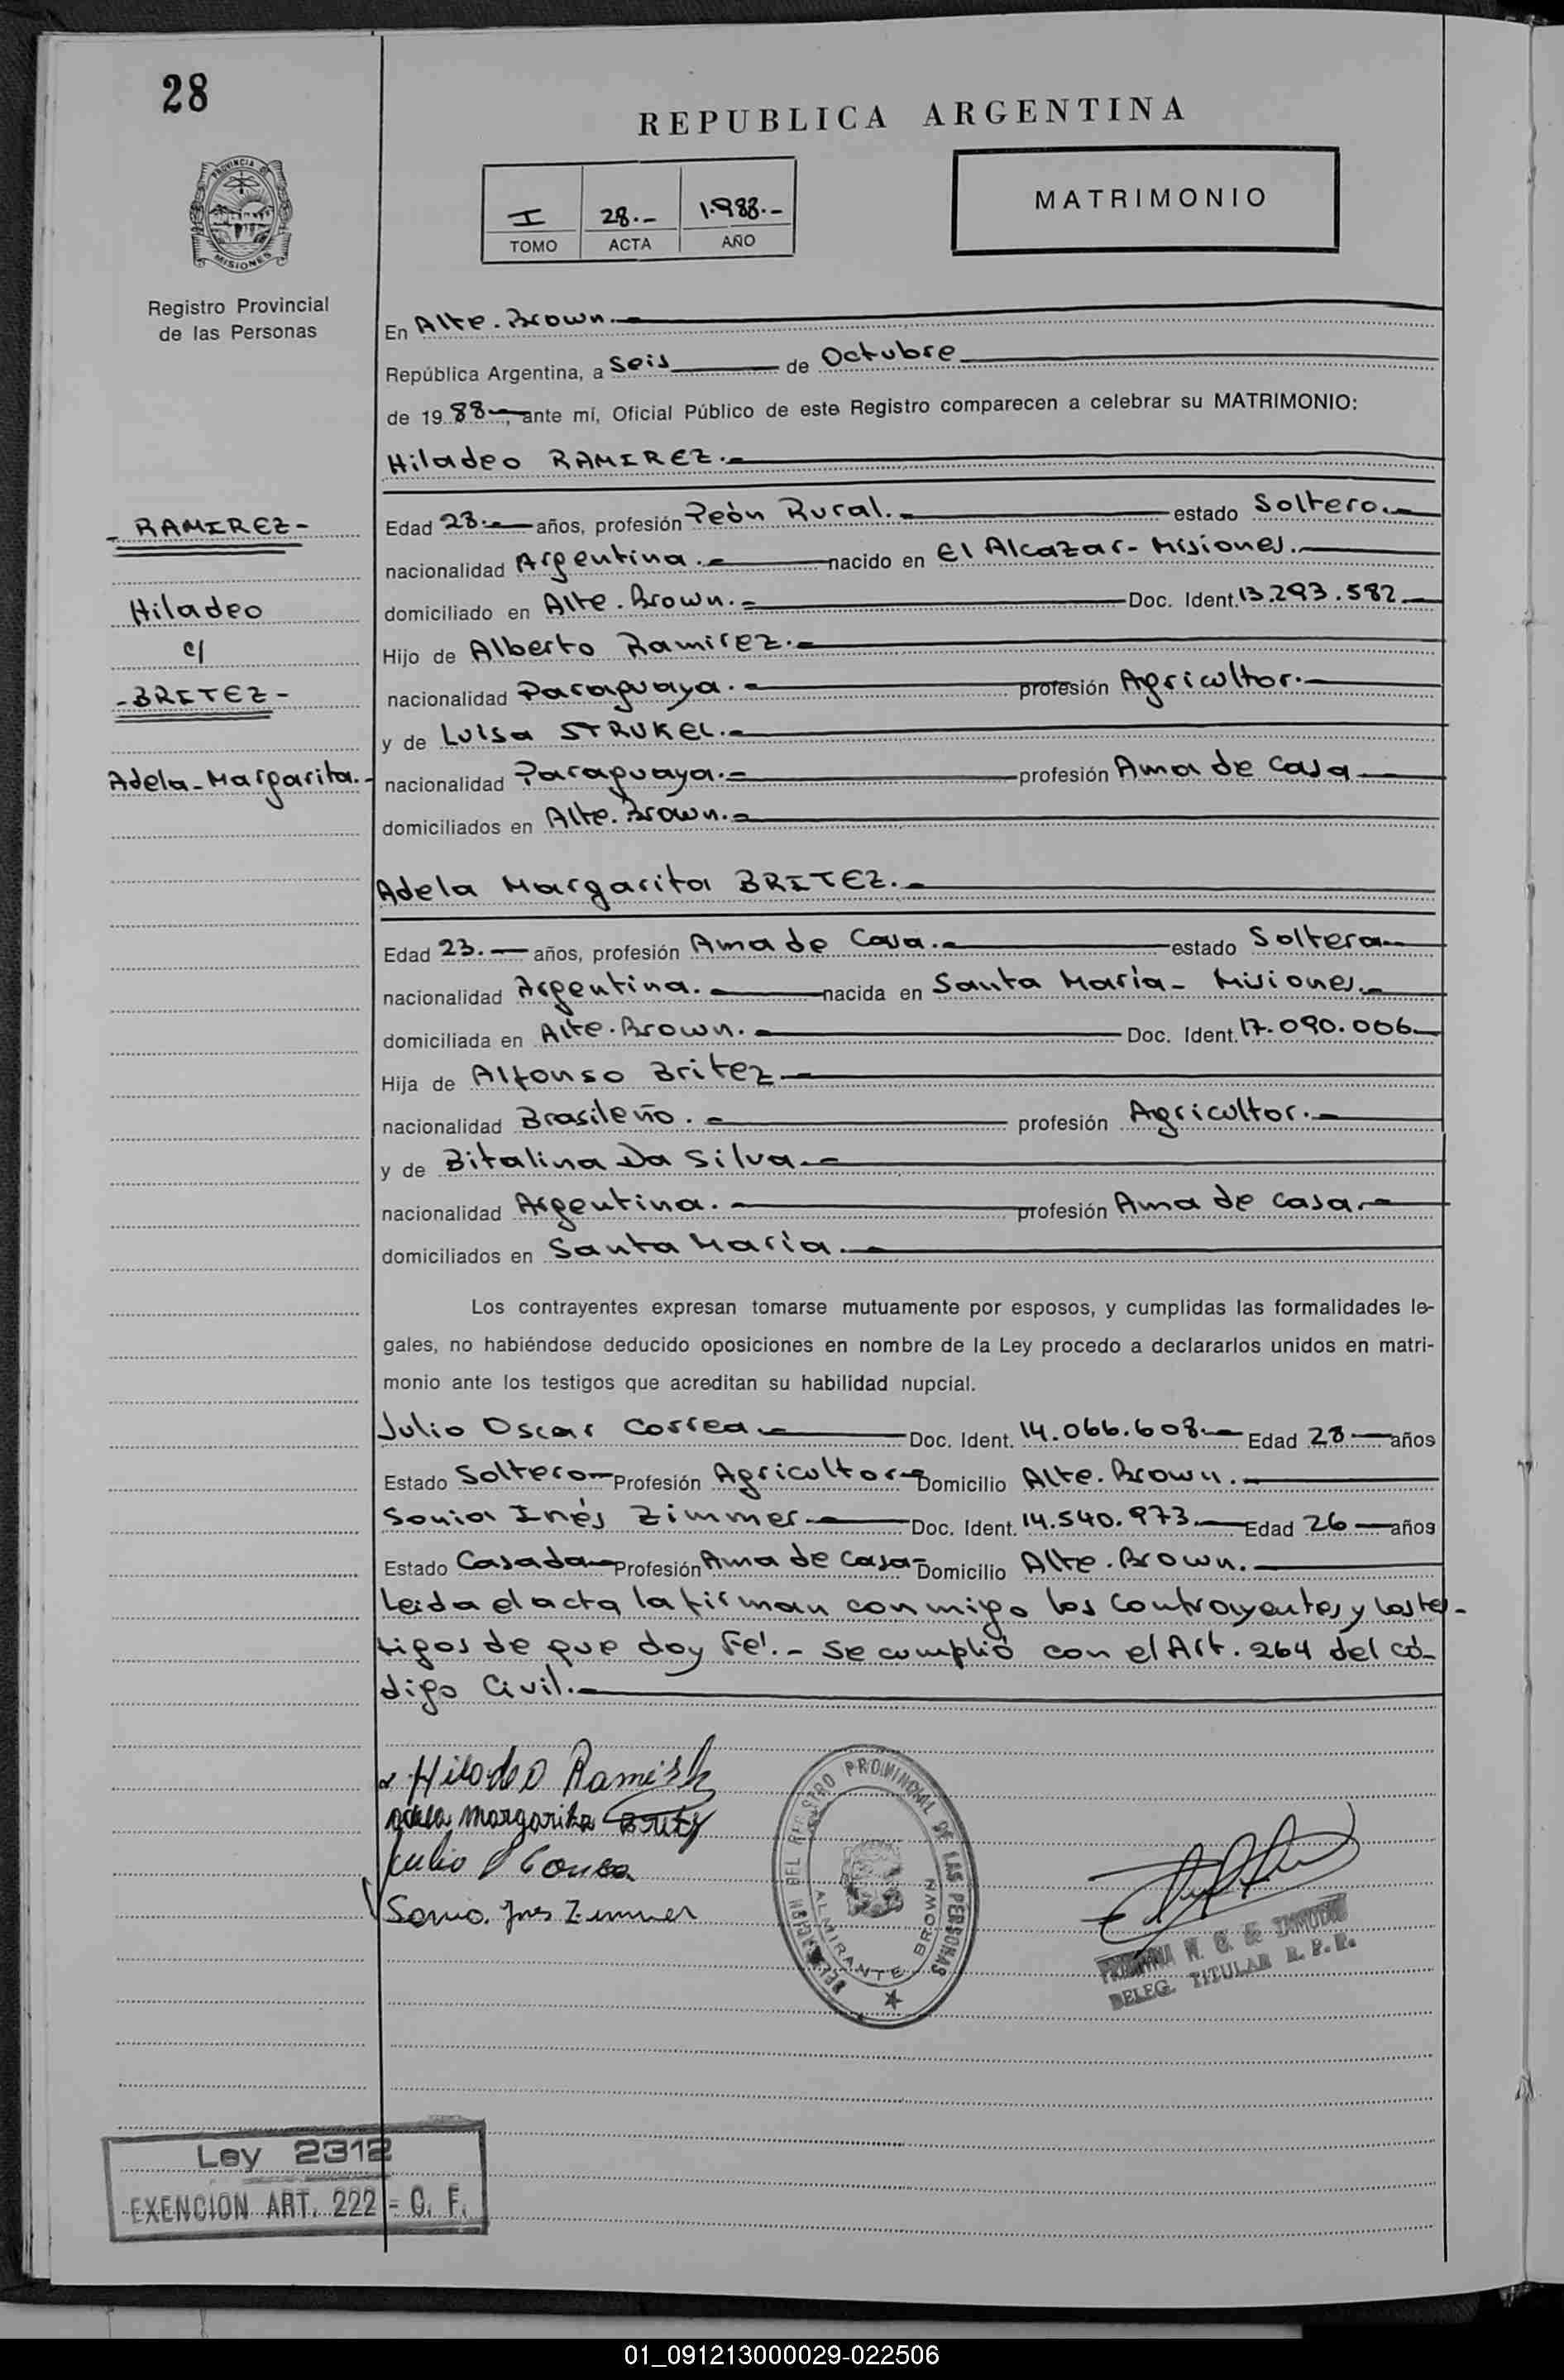 28
REPUBLICA ARGENTINA
PROVINCIA DE
MISIONES
I 28.- 1.988.-
TOMO ACTA AÑO
MATRIMONIO
Registro Provincial
de las Personas
En Alte. Brown.-
República Argentina, a Seis de Octubre
de 19 88 , ante mí, Oficial Público de este Registro comparecen a celebrar su MATRIMONIO:
Hiladeo RAMIREZ.-
- RAMIREZ-
Hiladeo
c/
- BRITEZ -
Adela Margarita.-
Edad 28.- años, profesión Peòn Rural.- estado Soltero.-
nacionalidad Argentina.- nacido en El Alcazar- Misiones.-
domiciliado en Alte. Brown.- Doc. Ident. 13.293.582.-
Hijo de Alberto Ramirez.-
nacionalidad Paraguaya.- profesión Agricultor.-
y de Luisa STRUKEL.-
nacionalidad Paraguaya.- profesión Ama de Casa
domiciliados en Alte. Brown.-
Adela Margarita BRITEZ.-
Edad 23.- años, profesión Ama de Casa.- estado Soltera
nacionalidad Argentina.- nacida en Santa María- Misiones.-
domiciliada en Alte. Brown.- Doc. Ident. 17.090.006
Hija de Alfonso Britez
nacionalidad Brasileño.- profesión Agricultor.-
y de Bitalina Da Silva.-
nacionalidad Argentina.- profesión Ama de casa.-
domiciliados en Santa María.-
Los contrayentes expresan tomarse mutuamente por esposos, y cumplidas las formalidades le-
gales, no habiéndose deducido oposiciones en nombre de la Ley procedo a declararlos unidos en matri-
monio ante los testigos que acreditan su habilidad nupcial.
Julio Oscar Correa.- Doc. Ident. 14.066.608.- Edad 28 años
Estado Soltero Profesión Agricultor Domicilio Alte. Brown.-
Sonia Inés Zimmer.- Doc. Ident. 14.540.973.- Edad 26 años
Estado Casada Profesión Ama de Casa Domicilio Alte. Brown.-
Leida el acta la firman conmigo los Contrayentes y los tes-
tigos de que doy Fe!.- Se cumplió con el Art. 264 del Có-
digo Civil.-
Hiladeo Ramirez
Adela margarita Britez
Julio O Correa
Sonia Ines Zimmer
DELEGACION DEL REGISTRO PROVINCIAL DE LAS PERSONAS
ALMIRANTE BROWN
DELEG. TITULAR R. P. P.
Ley 2312
EXENCION ART. 222 - C. F.
01_091213000029-022506